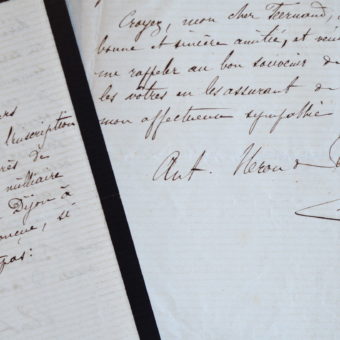 rs
l'inscription
rès de
milliaire
Dijon à
sé-
pas:
Croyez, mon cher Fernand,
bonne et sincère amitié, et
me rappeler au bon souvenir de
les vôtres en les assurant de
mon affectueuse sympathie
Ant. Héron de